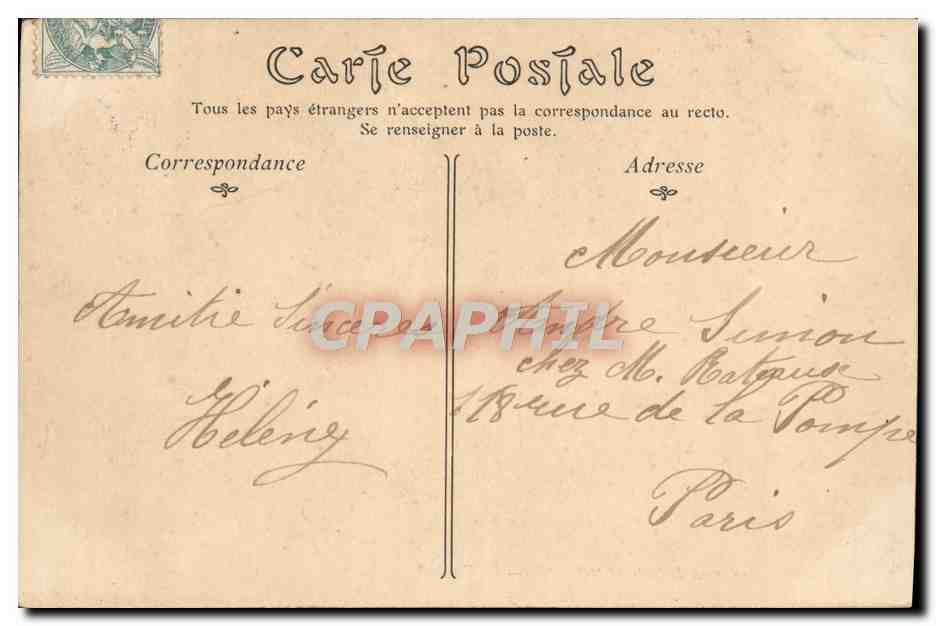 Carte Postale
Tous les pays étrangers n'acceptent pas la correspondance au recto.
Se renseigner à la poste.
Correspondance
Adresse
Amitié Sincères
Hélène
Monsieur
André Simon
chez M. Rateaux
118 rue de la Pompe
Paris
CPAPHIL